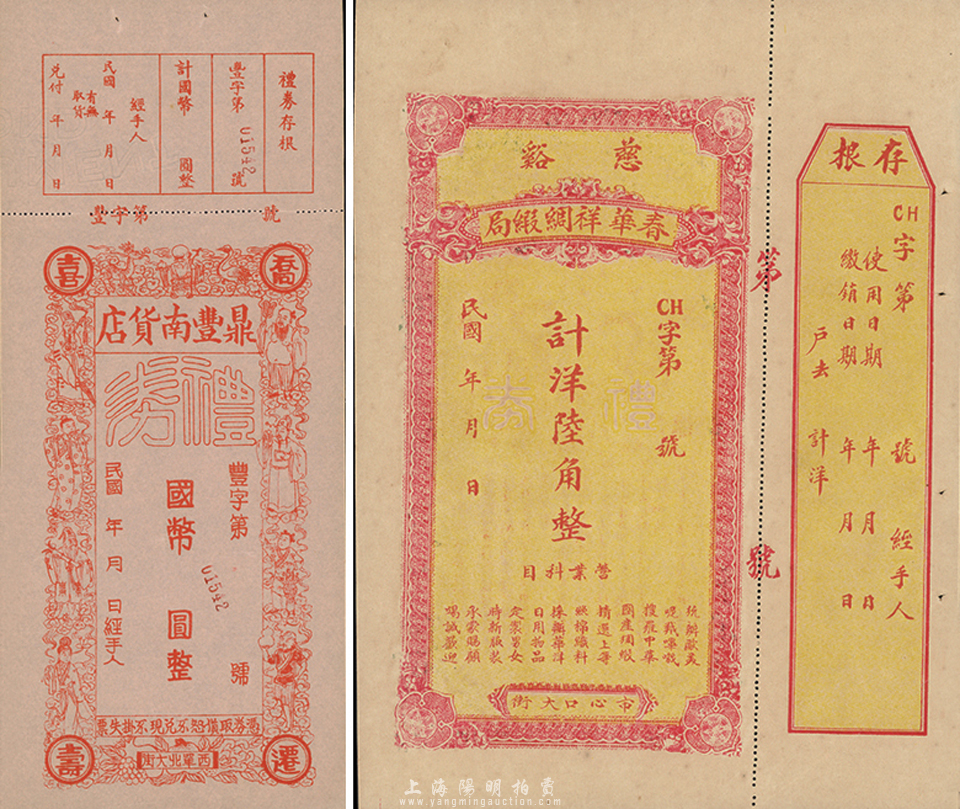 禮券存根
豐字第 01542 號
計國幣 圓整
經手人
民國 年 月 日
有無取貨
兌付 年 月 日
豐字第 號
喬
喜
鼎豐南貨店
禮券
豐字第 01542 號
國幣 圓整
民國 年 月 日經手人
西單北大街
遷
壽
慈谿
春華祥綢緞局
CH字第 號
計洋陸角整
禮券
民國 年 月 日
營業科目
統辦歐美
呢羢嗶嘰
搜羅中華
國產綢緞
精選上等
絲棉織料
採辦藥料
日用物品
定製男女
時新服裝
承蒙賜顧
竭誠歡迎
市心口大街
第 號
存根
CH字第 號 經手人
使用日期 年 月 日
繳銷日期 年 月 日
戶去 計洋
上海陽明拍賣
www.yangmingauction.com